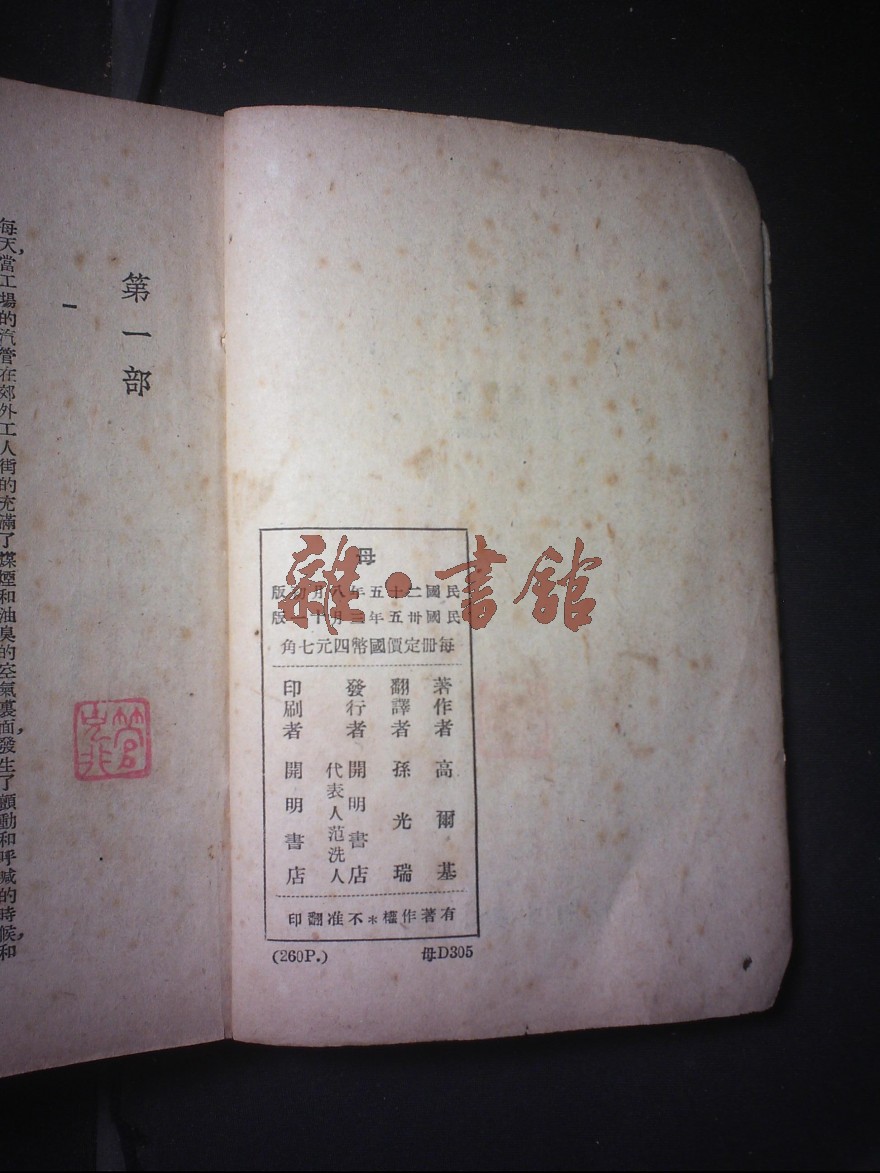 母
民國二十五年八月初版
民國卅五年三月十版
每冊定價國幣四元七角
著作者 高爾基
翻譯者 孫光瑞
發行者 開明書店
代表人范洗人
印刷者 開明書店
有著作權*不准翻印
(260P.) 母D305
第一部
一
每天,當工場的汽管在郊外工人街的充滿了煤煙和油臭的空氣裏面,發生了顫動和呼喊的時候,和
雜·書館